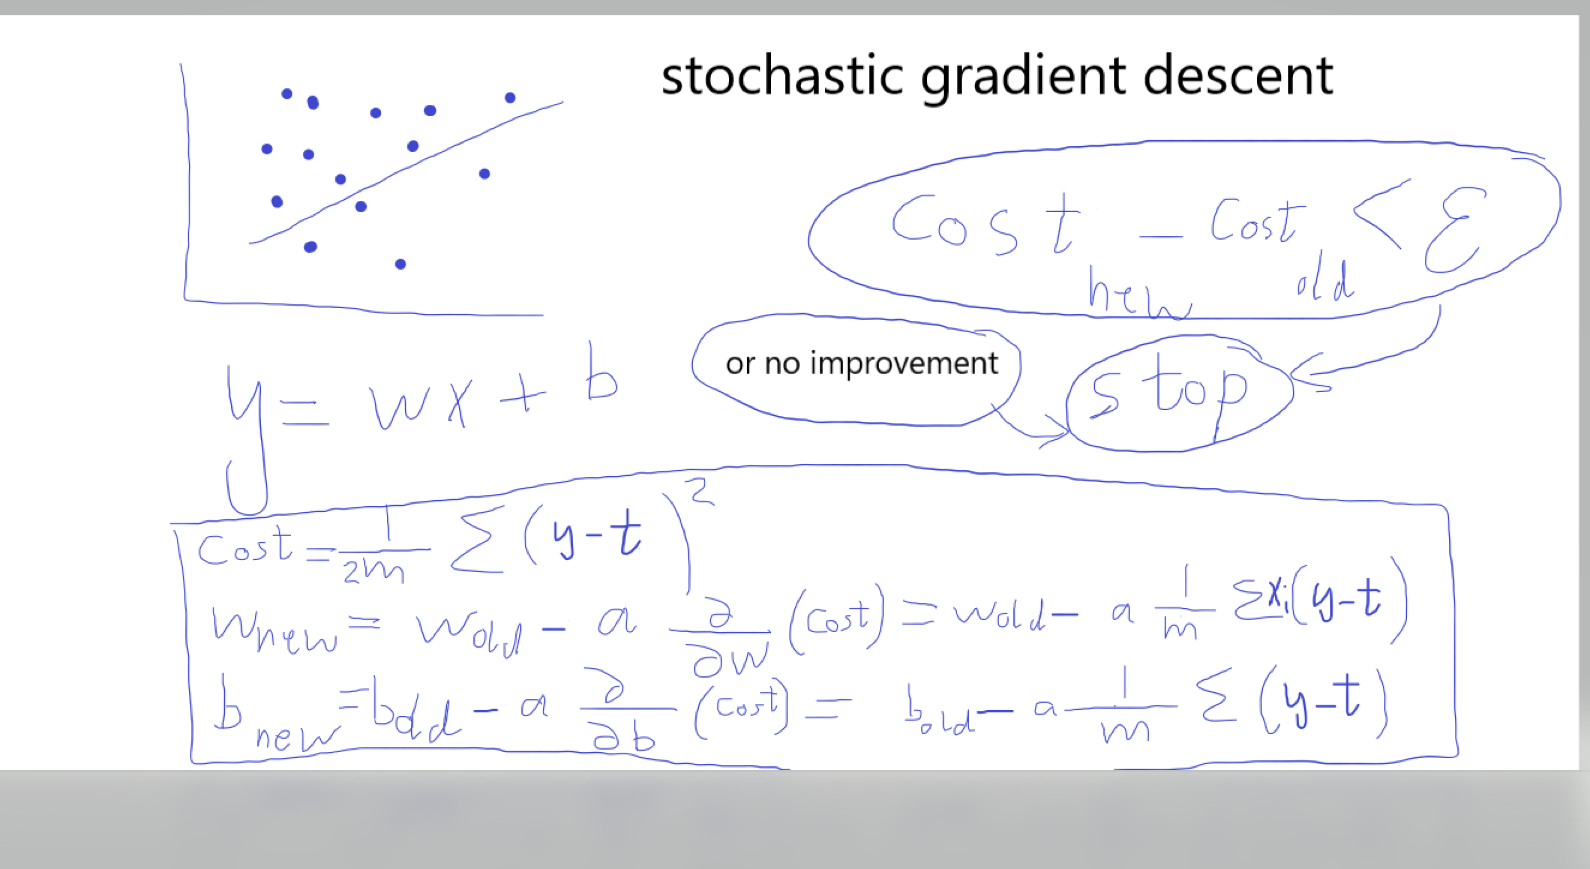 stochastic gradient descent
Cost new - Cost old < ε
y = wx + b
or no improvement
stop
Cost = 1/2m Σ (y-t)²
wnew = wold - a ∂/∂w (Cost) = wold - a 1/m Σxi(y-t)
bnew = bold - a ∂/∂b (Cost) = bold - a 1/m Σ (y-t)